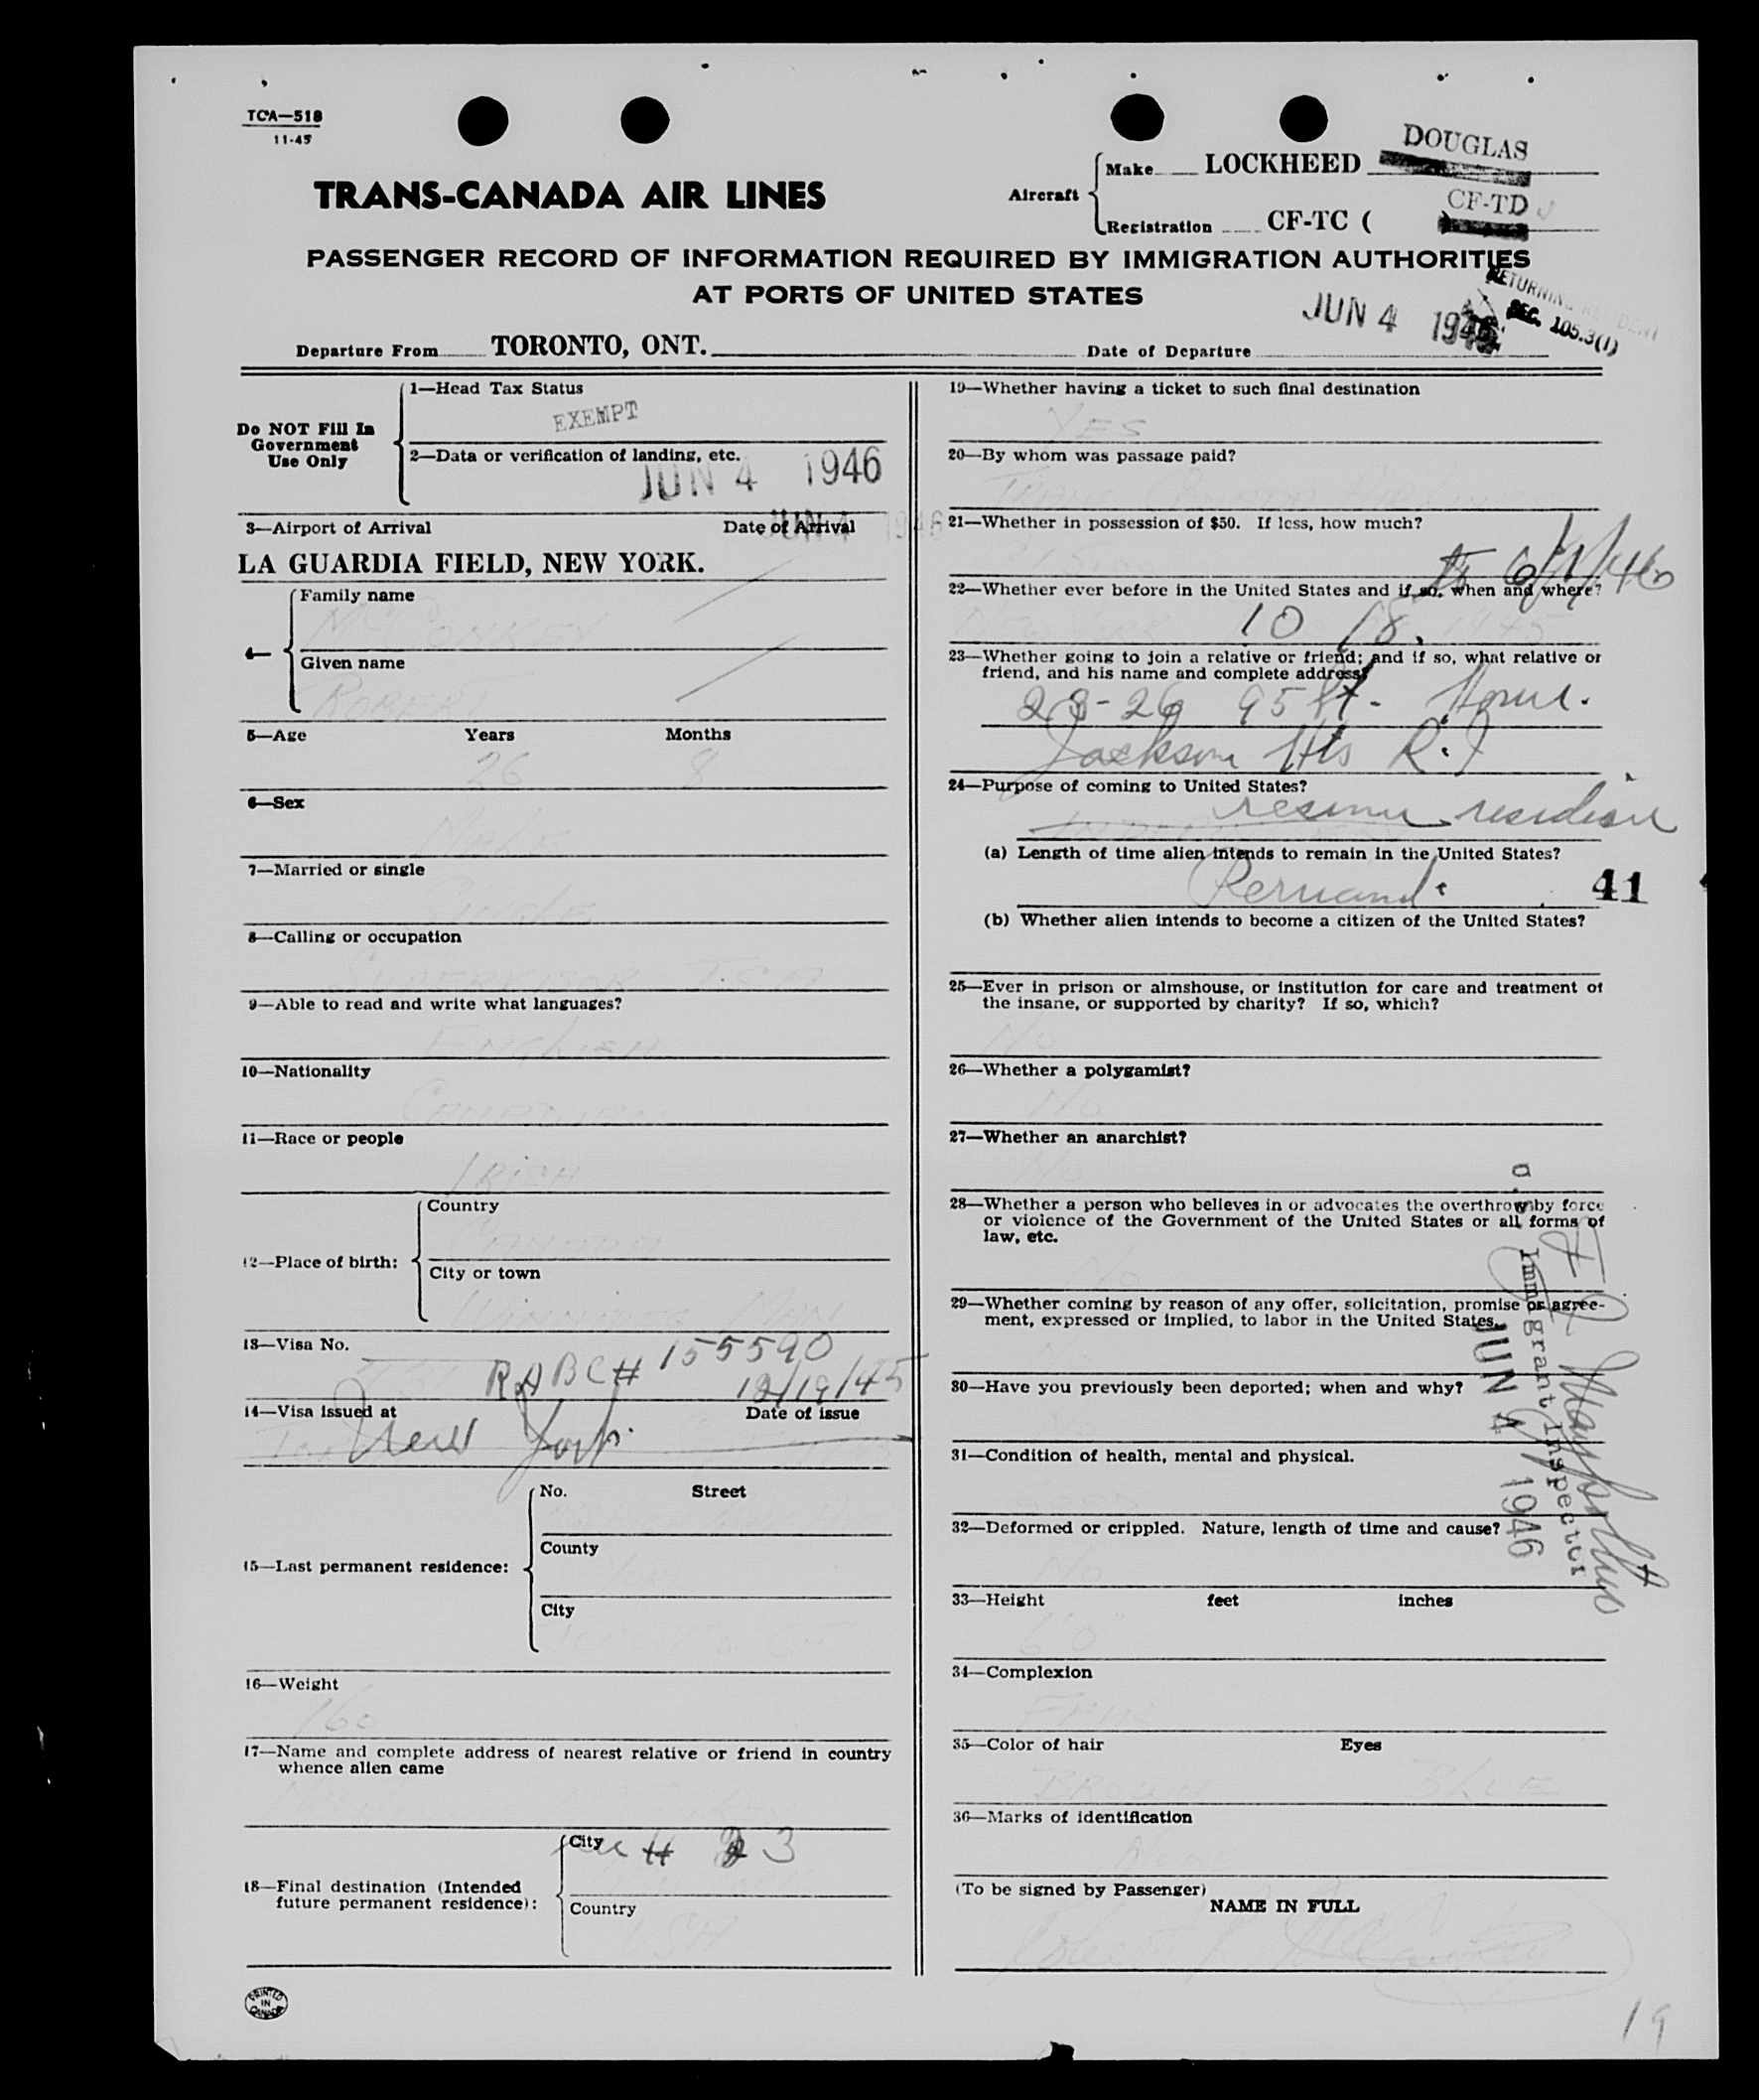 TCA—518
11-45
TRANS-CANADA AIR LINES
Aircraft
Make LOCKHEED DOUGLAS
Registration CF-TC ( CF-TD
PASSENGER RECORD OF INFORMATION REQUIRED BY IMMIGRATION AUTHORITIES
AT PORTS OF UNITED STATES
RETURNING RESIDENT
SEC. 105.3(1)
JUN 4 1946
Departure From TORONTO, ONT. Date of Departure
Do NOT Fill In
Government
Use Only
1—Head Tax Status
EXEMPT
2—Data or verification of landing, etc.
JUN 4 1946
3—Airport of Arrival Date of Arrival
JUN 4 1946
LA GUARDIA FIELD, NEW YORK.
4—
Family name
Given name
ROBERT
5—Age Years Months
26 8
6—Sex
MALE
7—Married or single
SINGLE
8—Calling or occupation
SUPERVISOR T.C.A
9—Able to read and write what languages?
ENGLISH
10—Nationality
CANADIAN
11—Race or people
IRISH
12—Place of birth:
Country
CANADA
City or town
WINNIPEG MAN
13—Visa No.
RABC# 155590
12/19/45
14—Visa issued at Date of issue
New York
15—Last permanent residence:
No. Street
County
City
16—Weight
160
17—Name and complete address of nearest relative or friend in country
whence alien came
18—Final destination (Intended
future permanent residence):
City
# 23
Country
USA
PRINTED
IN
CANADA
19—Whether having a ticket to such final destination
YES
20—By whom was passage paid?
TRANS CANADA
21—Whether in possession of $50. If less, how much?
to 6/1/46
22—Whether ever before in the United States and if so, when and where?
10 18. 1945
23—Whether going to join a relative or friend; and if so, what relative or
friend, and his name and complete address?
23-26 95 St. Home.
Jackson Hts
24—Purpose of coming to United States?
resume residence
(a) Length of time alien intends to remain in the United States?
41
(b) Whether alien intends to become a citizen of the United States?
25—Ever in prison or almshouse, or institution for care and treatment of
the insane, or supported by charity? If so, which?
No
26—Whether a polygamist?
No
27—Whether an anarchist?
No
28—Whether a person who believes in or advocates the overthrow by force
or violence of the Government of the United States or all forms of
law, etc.
No
29—Whether coming by reason of any offer, solicitation, promise or agree-
ment, expressed or implied, to labor in the United States.
30—Have you previously been deported; when and why?
31—Condition of health, mental and physical.
32—Deformed or crippled. Nature, length of time and cause?
No
Immigrant Inspector
JUN 4 1946
33—Height feet inches
6 0
34—Complexion
FAIR
35—Color of hair Eyes
BROWN BLUE
36—Marks of identification
(To be signed by Passenger)
NAME IN FULL
19